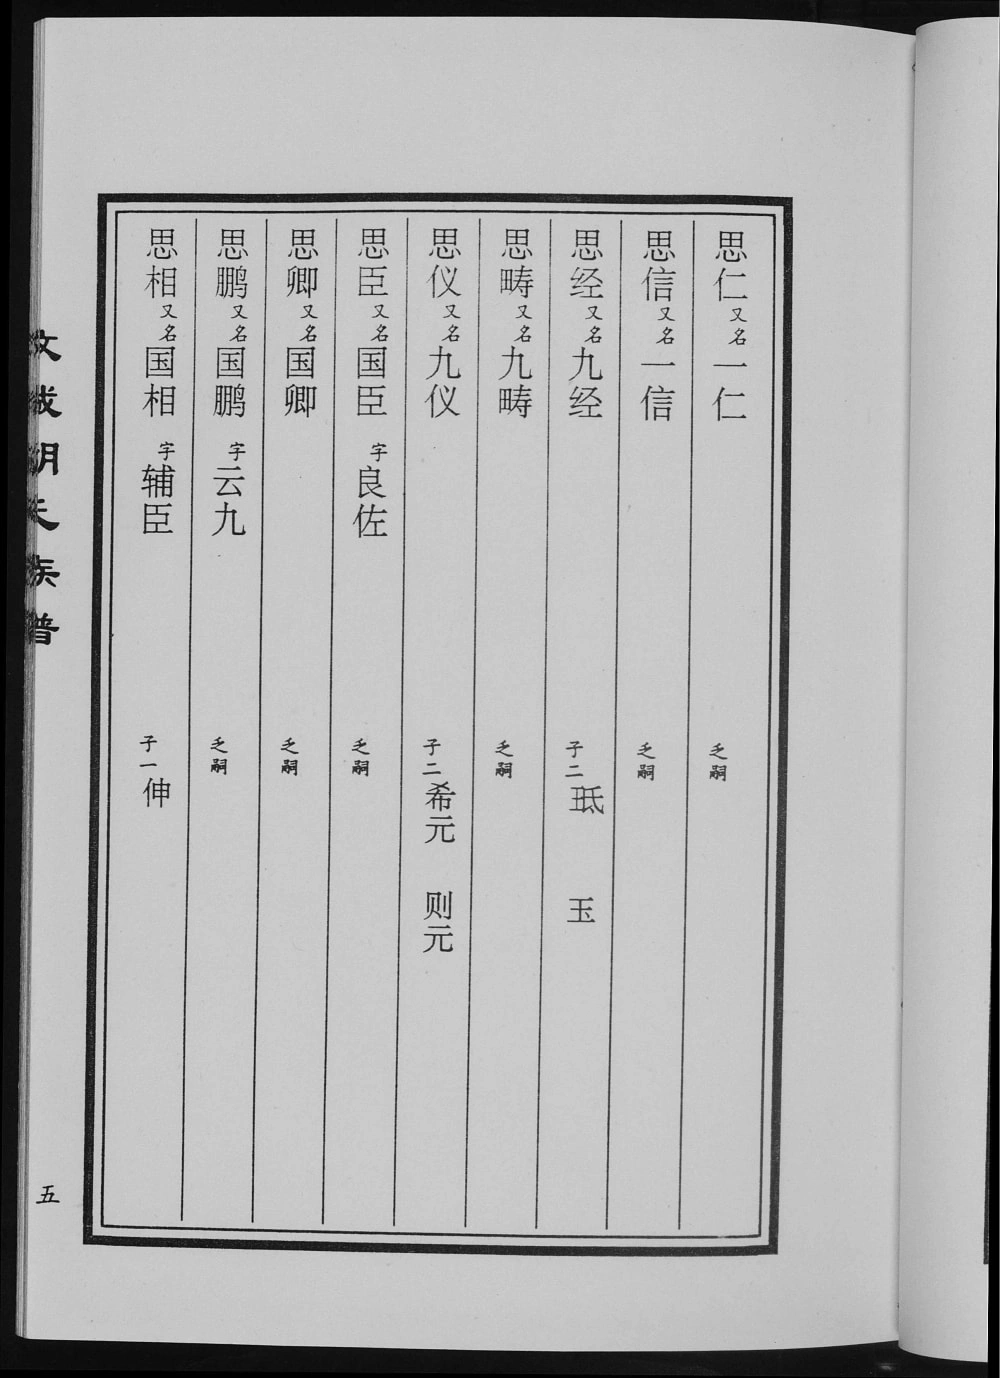 思仁又名一仁 乏嗣
思信又名一信 乏嗣
思经又名九经 子二 玉
思畴又名九畴 乏嗣
思仪又名九仪 子二希元 则元
思臣又名国臣 字良佐 乏嗣
思卿又名国卿 乏嗣
思鹏又名国鹏 字云九 乏嗣
思相又名国相 字辅臣 子一伸
胡氏族谱
五